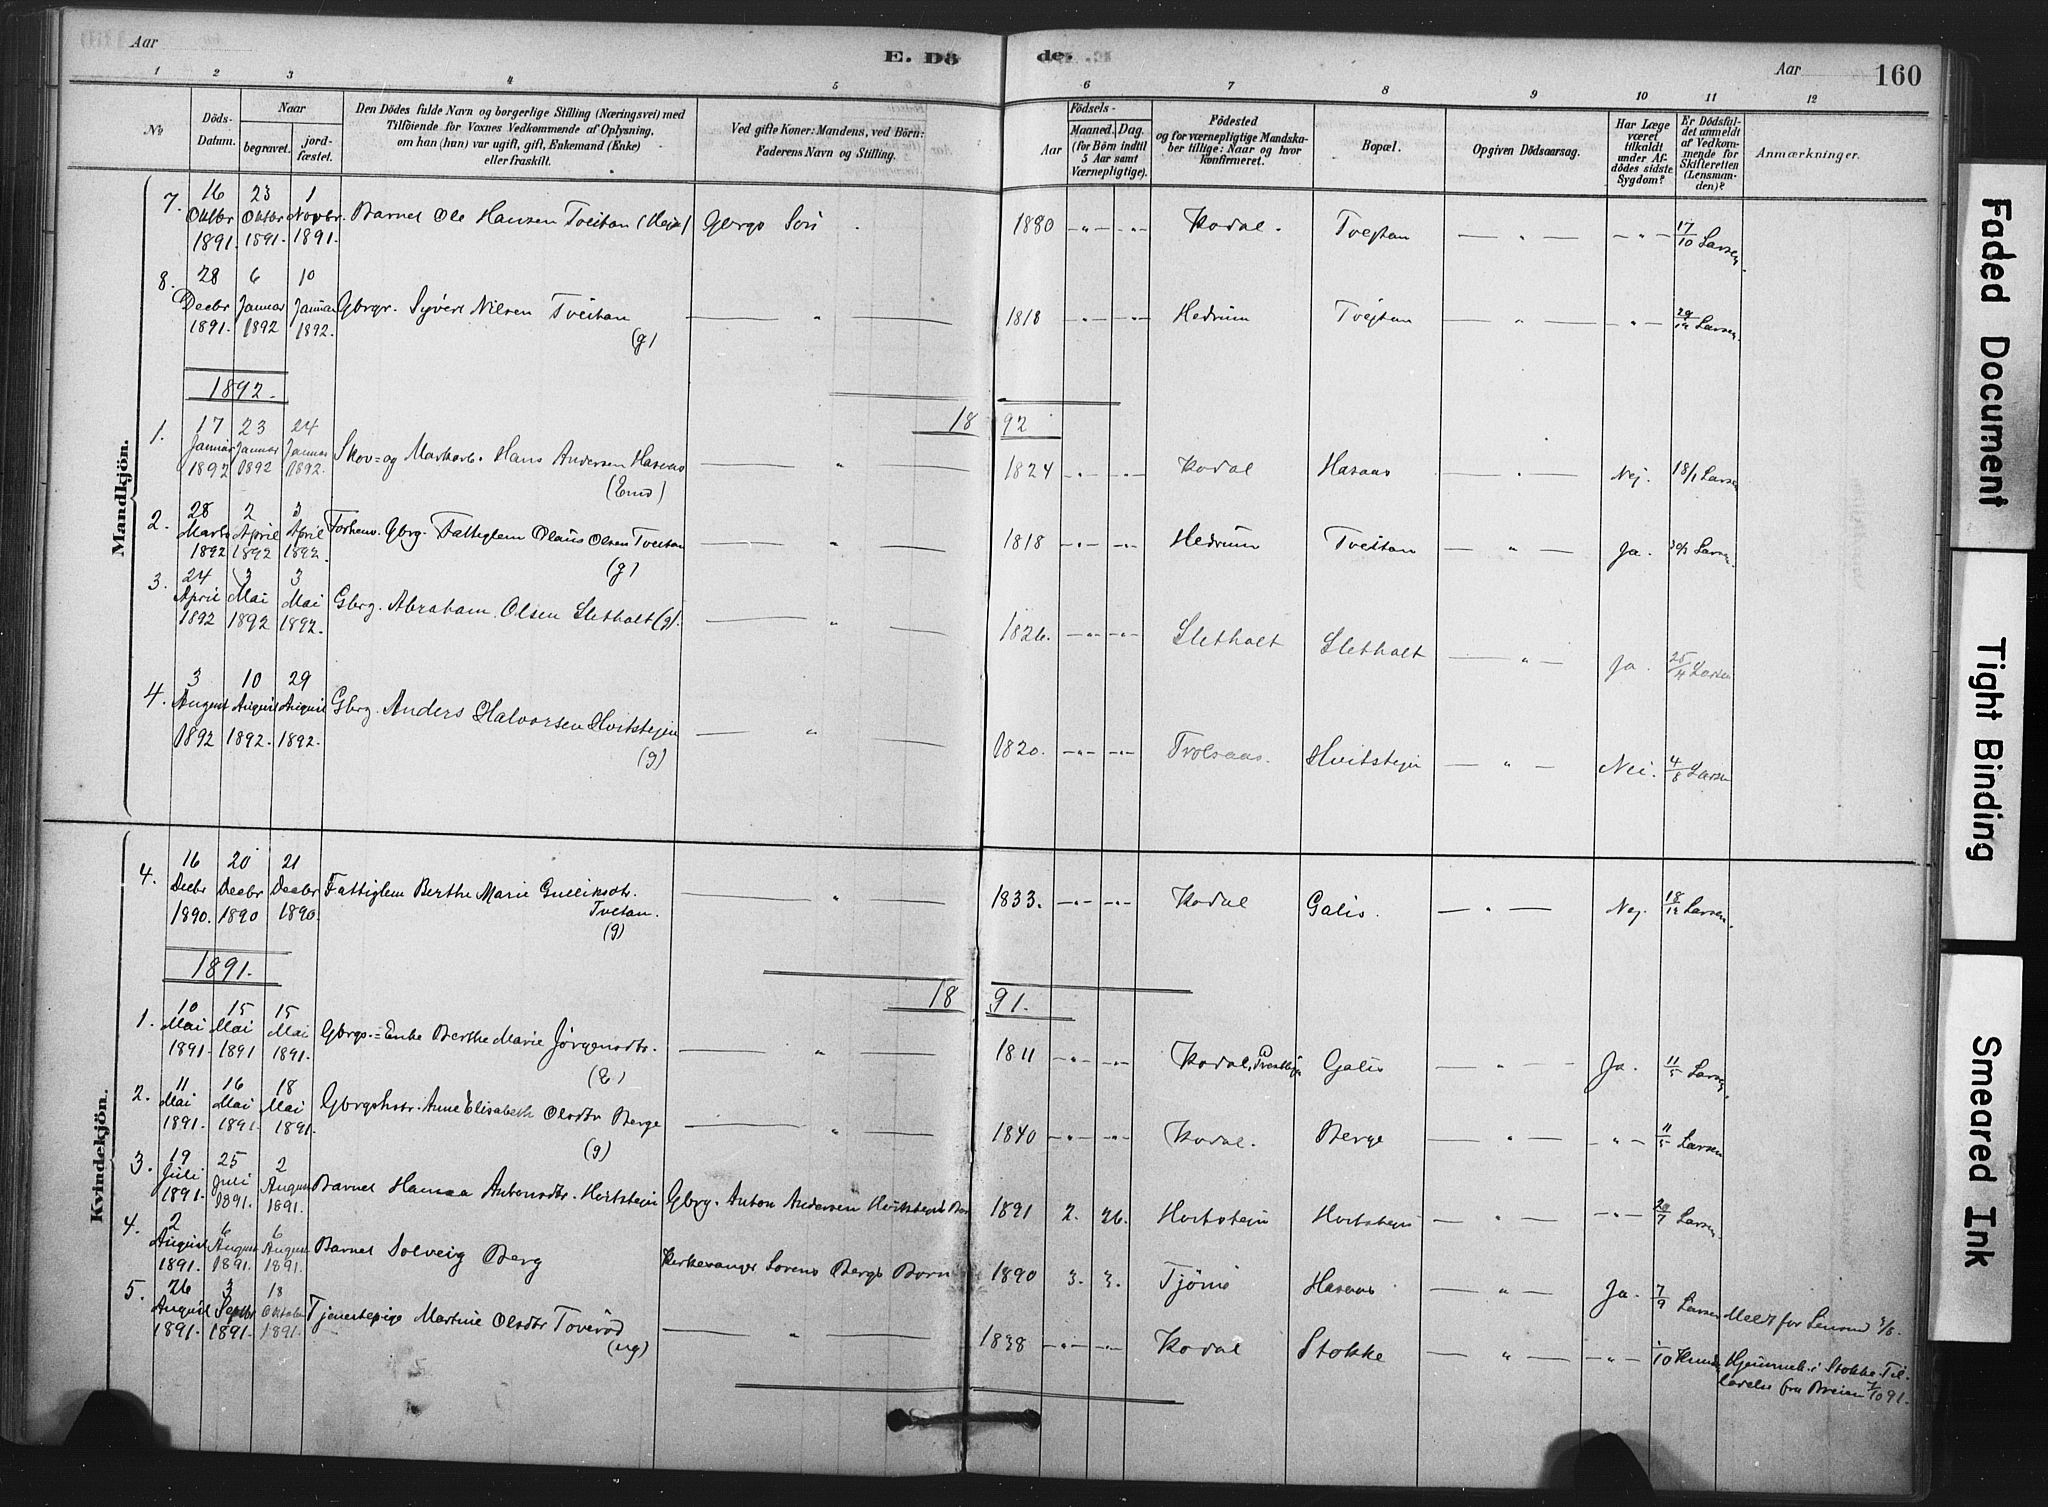 Aar
E. Dö
de.
Aar
160
1 2 3 4 5 6 7 8 9 10 11 12
No
Döds-Datum.
Naar
begravet.
jord-fæstet.
Den Dödes fulde Navn og borgerlige Stilling (Næringsvei) med
Tilföiende for Voxnes Vedkommende af Oplysning,
om han (han) var ugift, gift, Enkemand (Enke)
eller fraskilt.
Ved gifte Koner: Mandens, ved Börn:
Faderens Navn og Stilling.
Födsels-
Aar
Maaned. Dag.
(for Börn indtil
5 Aar samt
Værnepligtige).
Födested
og for værnepligtige Mandska-
ber tillige: Naar og hvor
Konfirmeret.
Bopæl.
Opgiven Dödsaarsag.
Har Læge
været
tilkaldt
under Af-
dödes sidste
Sygdom?
Er Dödsfal-
det anmeldt
af Vedkom-
mende for
Skifteretten
(Lensman-
den)?
Anmærkninger.
Mandkjön.
7. 16 Oktbr 1891. 23 Oktbr 1891. 1 Novbr. 1891. Barnet Ole Hansen Tveitan Gbrgs Søn 1880 Kodal. Tvejtan 17/10 Larsen.
8. 28 Decbr 1891. 6 Januar 1892 10 Januar 1892. Gbrgr. Syvert Nilsen Tveitan (g) 1818 Hedrum Tvejtan 29/12 Larsen.
1892.
18 92
1. 17 Januar 1892 23 Januar 1892 24 Januar 1892. Skov= og Markarb. Hans Andersen Hasaas (Emd) 1824 Kodal Hasaas Nej. 18/1 Larsen
2. 28 Marts 1892 2 April 1892 3 April 1892. Forhenv. Gbrg. Fattiglem Olaus Olsen Tveitan (g) 1818 Hedrum Tveitan Ja. 30/3 Larsen.
3. 24 April 1892 3 Mai 1892 3 Mai 1892. Gbrg. Abraham Olsen Sletholt (g). 1826. Sletholt Sletholt Ja. 25/4 Larsen
4. 3 August 1892 10 August 1892. 29 August 1892. Gbrg. Anders Halvorsen Hvitstejn (g) 1820. Trolsaas. Hvitstejn Nei. 4/8 Larsen
Kvindekjön.
4. 16 Decbr 1890. 20 Decbr 1890 21 Decbr 1890. Fattiglem Berthe Marie Gulliksdtr. Tveitan. (g) 1833. Kodal Galis. Nej. 18/12 Larsen.
1891.
18 91.
1. 10 Mai 1891. 15 Mai 1891 15 Mai 1891. Gbrgs=Enke Berthe Marie Jørgensdtr. (E) 1811 Kodal, Galis Ja. 11/5 Larsen.
2. 11 Mai 1891. 16 Mai 1891. 18 Mai 1891. Anne Elisabeth Olsdtr Berge (g) 1840 Kodal. Berge 11/5 Larsen
3. 19 Juli 1891. 25 Juli 1891. 2 August 1891. Barnet Hanna Antonsdtr. Hvitstejn Gbrg. Anton Andersen Hvitstejns Barn 1891 2. 26. Hvitstejn Hvitstejn 20/7 Larsen.
4. 2 August 1891. 6 August 1891. 6 August 1891. Barnet Solveig Berg Kirkesanger Sorens Bergs Barn 1890 3. 3. Tjømø Hasaas Ja. 7/9 Larsen Meldt for
5. 26 August 1891. 3 Septbr 1891. 18 Oktober 1891. Tjenestepige Martine Olsdtr Toverød (ug) 1838 Kodal Stokke /10 Hjemmeh. i Stokke. Til-
ladelse fra 7/10 91.
Faded Document
Tight Binding
Smeared Ink